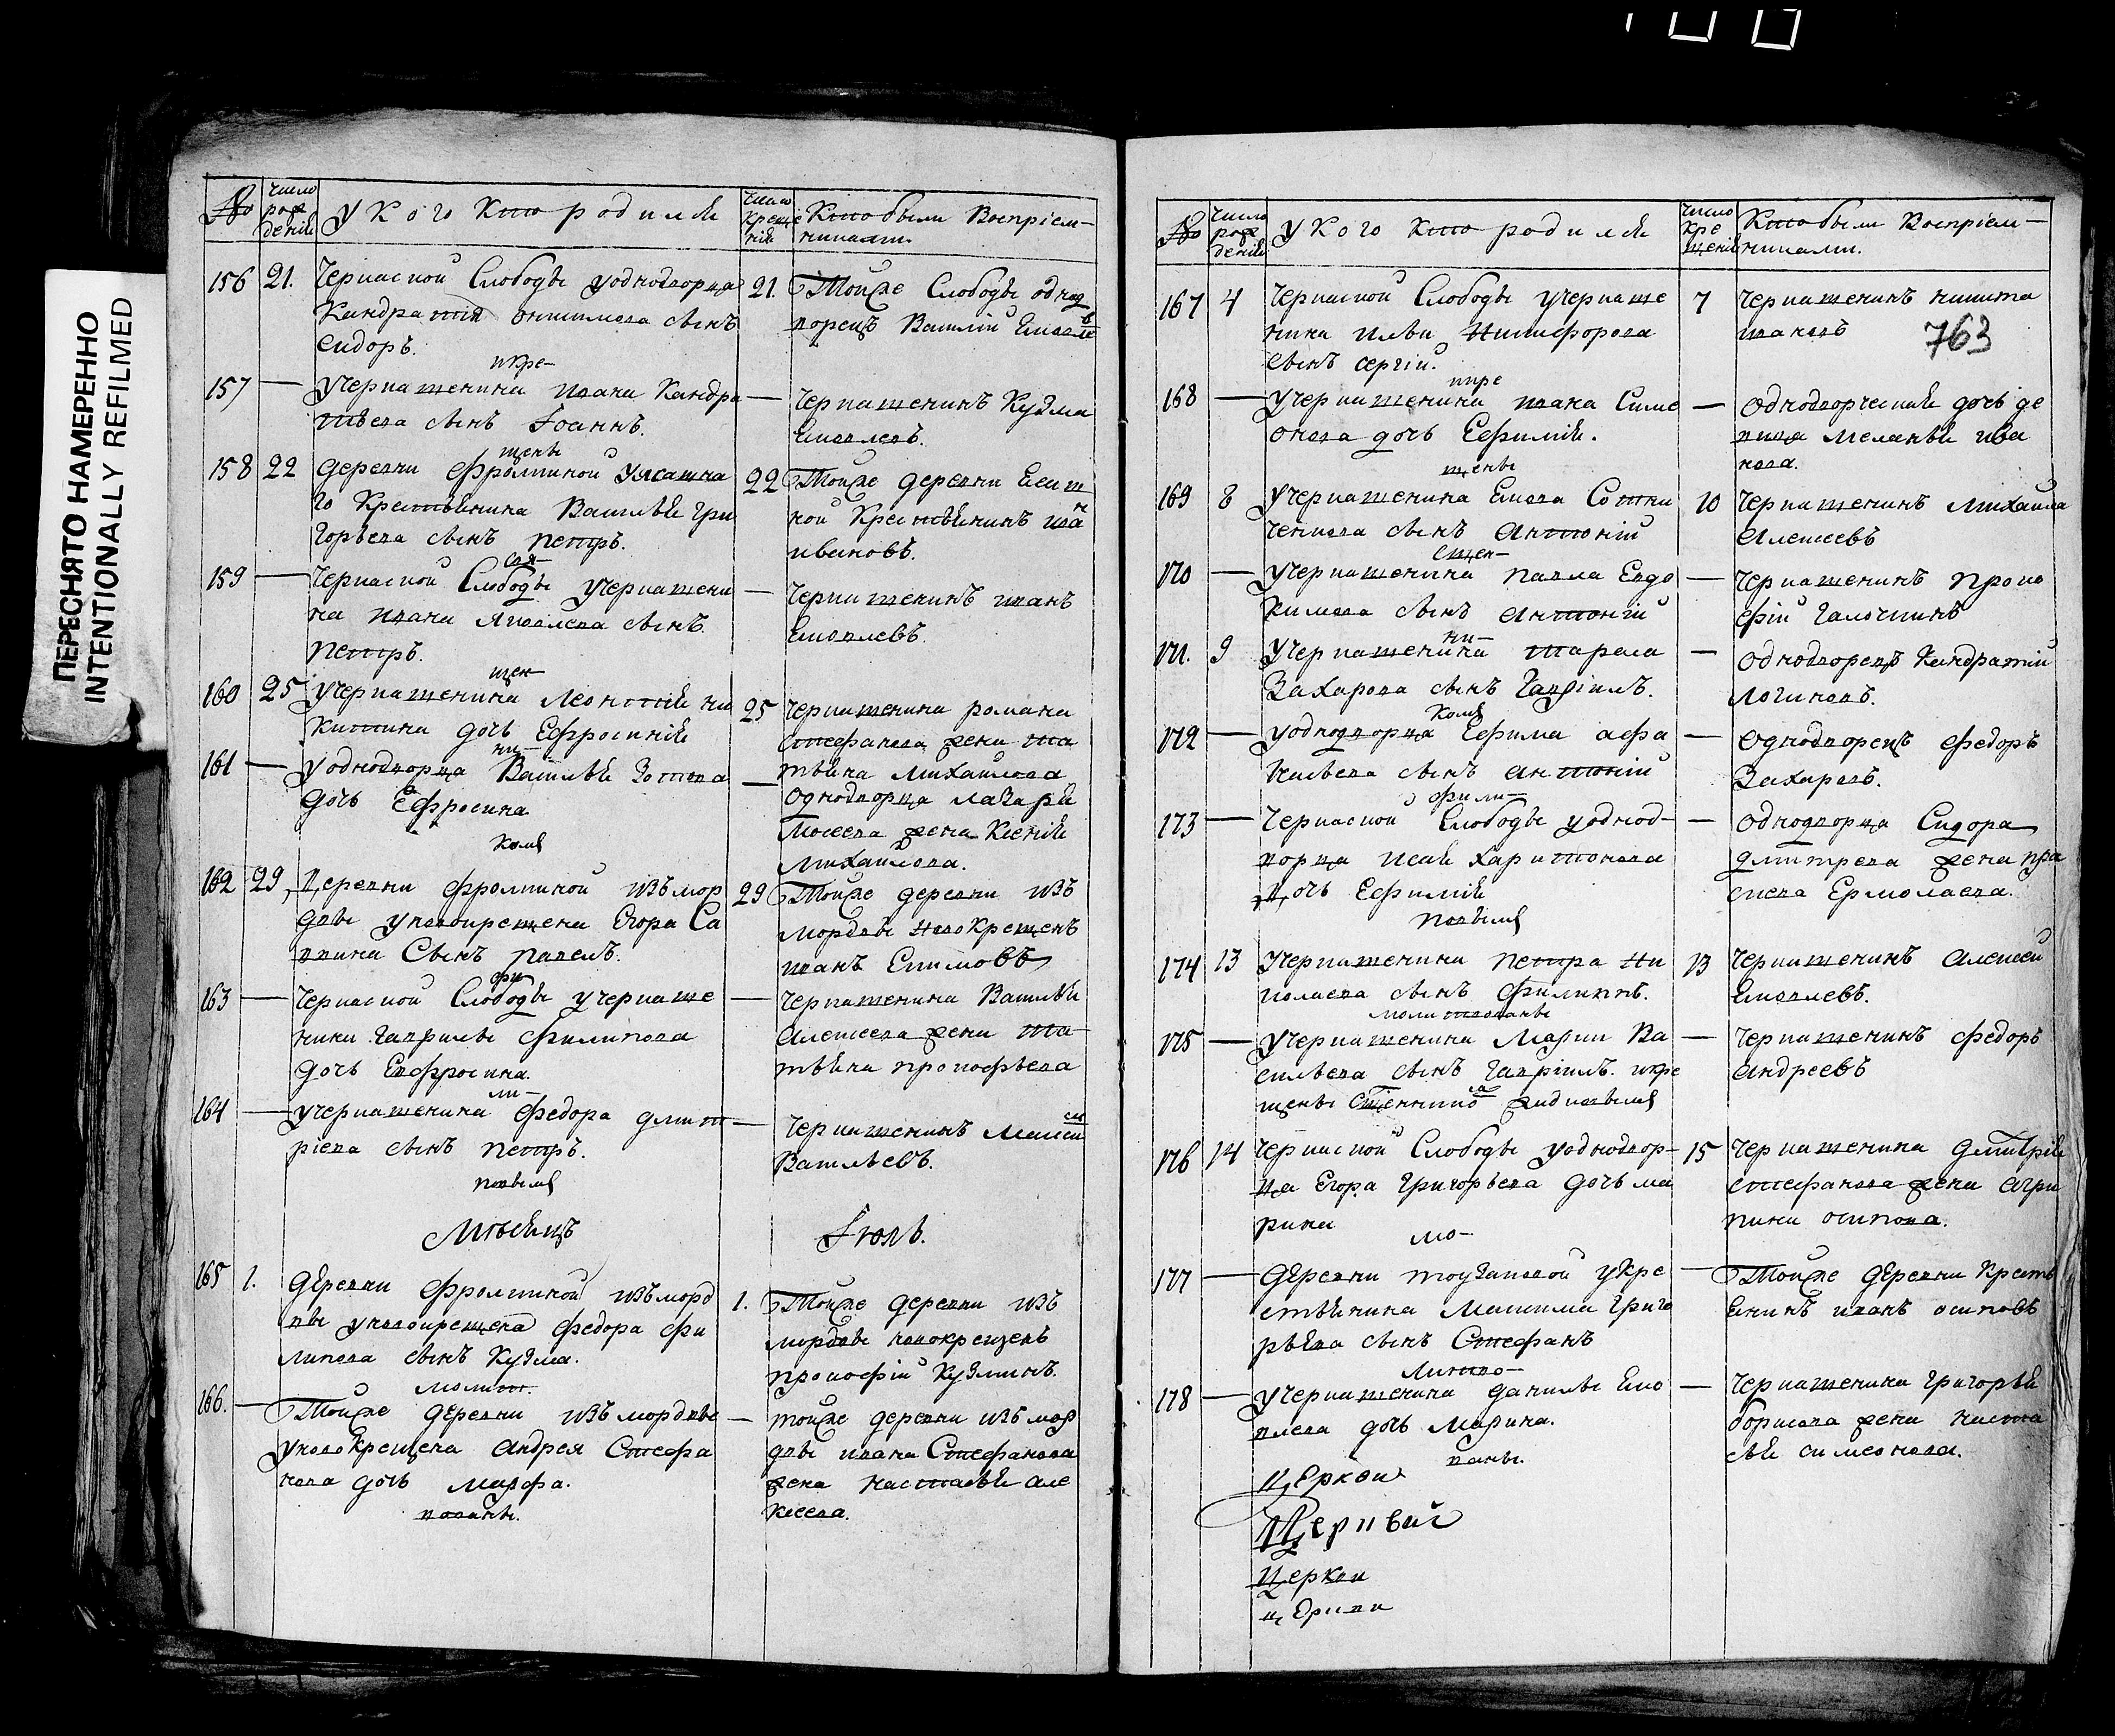 ПЕРЕСНЯТО НАМЕРЕННО
INTENTIONALLY REFILMED
№
число рождения
У кого кто родился
число крещения
Кто были Восприемниками
156 21. Черкаской Слободы у однодворца
Кандратія Онисимова сынъ
Сидоръ.
21. Тойже Слободы однод
ворецъ Василій
157 — У черкашенина Ивана Кандра
тьева сынъ Іоаннъ.
— Черкашенинъ Кузма
Яковлевъ.
158 22 деревни Фролкиной У ясашна
го Крестьянина Василья Гри
горьева сынъ Петръ.
22 Тойже деревни ясаш
ной Крестьянинъ
Ивановъ.
159 — Черкаской Слободы у черкашени
на Ивана Яковлева сынъ
Петръ.
— Черкашенинъ Иванъ
Яковлевъ.
160 25 У черкашенина Леонтія Ни
китина дочь Ефросинія
25 Черкашенина Романа
Стефанова жена Та
тьяна Михайлова
161 — У однодворца Василья Зотова
дочь Ефросина
— Однодворца Лазаря
Мосеева жена Ксенія
Михайлова.
162 29 Деревни Фролкиной изъ мор
двы у новокрещена Егора Са
ввина Сынъ Павелъ.
29 Тойже деревни изъ
мордвы Новокрещенъ
Иванъ Екимовъ
163 — Черкаской Слободы у черкаше
нина Гаврилы Филипова
дочь Евфросина.
— Черкашенина Василья
Алексеева жена Та
тьяна Прокофьева
164 — У черкашенина Федора Дмит
ріева сынъ Петръ.
— Черкашенинъ
Васильевъ.
Мѣсяцъ Іюль.
165 1. Деревни Фролкиной изъ морд
вы у новокрещена Федора Фи
липова сынъ Кузма.
1. Тойже деревни изъ
мордвы новокрещенъ
Прокофій Кузминъ.
166. — Тойже деревни изъ мордвы
у новокрещена Андрея Стефа
нова дочь Марфа.
— Тойже деревни изъ мор
двы Ивана Стефанова
жена Настасья Але
ксеева.
№
число рождения
У кого кто родился
число крещения
Кто были Восприемниками.
763
167 4 Черкаской Слободы у черкаше
нина Ильи Никифорова
сынъ Сергій.
7 Черкашенинъ Никита
Ивановъ
168 — У черкашенина Ивана Симе
онова дочь Ефимія.
— Однодворческая дочь де
вица Меланья Ива
нова.
169 8 У черкашенина Якова Сотни
ченкова сынъ Антоній
10 Черкашенинъ Михайла
Алексеевъ
170 — У черкашенина Павла Евдо
кимова сынъ Антоній
— Черкашенинъ Проко
фій Галочкинъ
171. 9 У черкашенина Тараса
Захарова сынъ Гавріилъ.
— Однодворецъ Кандратій
Логиновъ.
172 — У однодворца Ефима Афа
насьева сынъ Антоній
— Однодворецъ Федоръ
Захаровъ.
173 — Черкаской Слободы у однод-
ворца Исая Харитонова
дочь Ефимія
— Однодворца Сидора
Дмитрева жена Пра
сковя Ермолаева.
174 13 У черкашенина Петра Ни
колаева сынъ Филиппъ.
13 Черкашенинъ Алексей
Яковлевъ.
175 — У черкашенина Марки Ва
сильева сынъ Гавріилъ.
— Черкашенинъ Федоръ
Андреевъ
176 14 Черкаской Слободы у однодвор-
ца Егора Григорьева дочь Ма
рина
15 Черкашенина Дмитрія
Стефанова жена Агри
пина Осипова.
177 — Деревни Тоузаковой у кре
стьянина Максима Григо
рьева сынъ Стефанъ
— Тойже Деревни Кресть
янинъ Иванъ Осиповъ
178 — У черкашенина Данилы Яко
влева дочь Марина.
— Черкашенина Григорья
Борисова жена Наста
сья Симеонова.
Церкви
Церквей
Церкви
Церкви